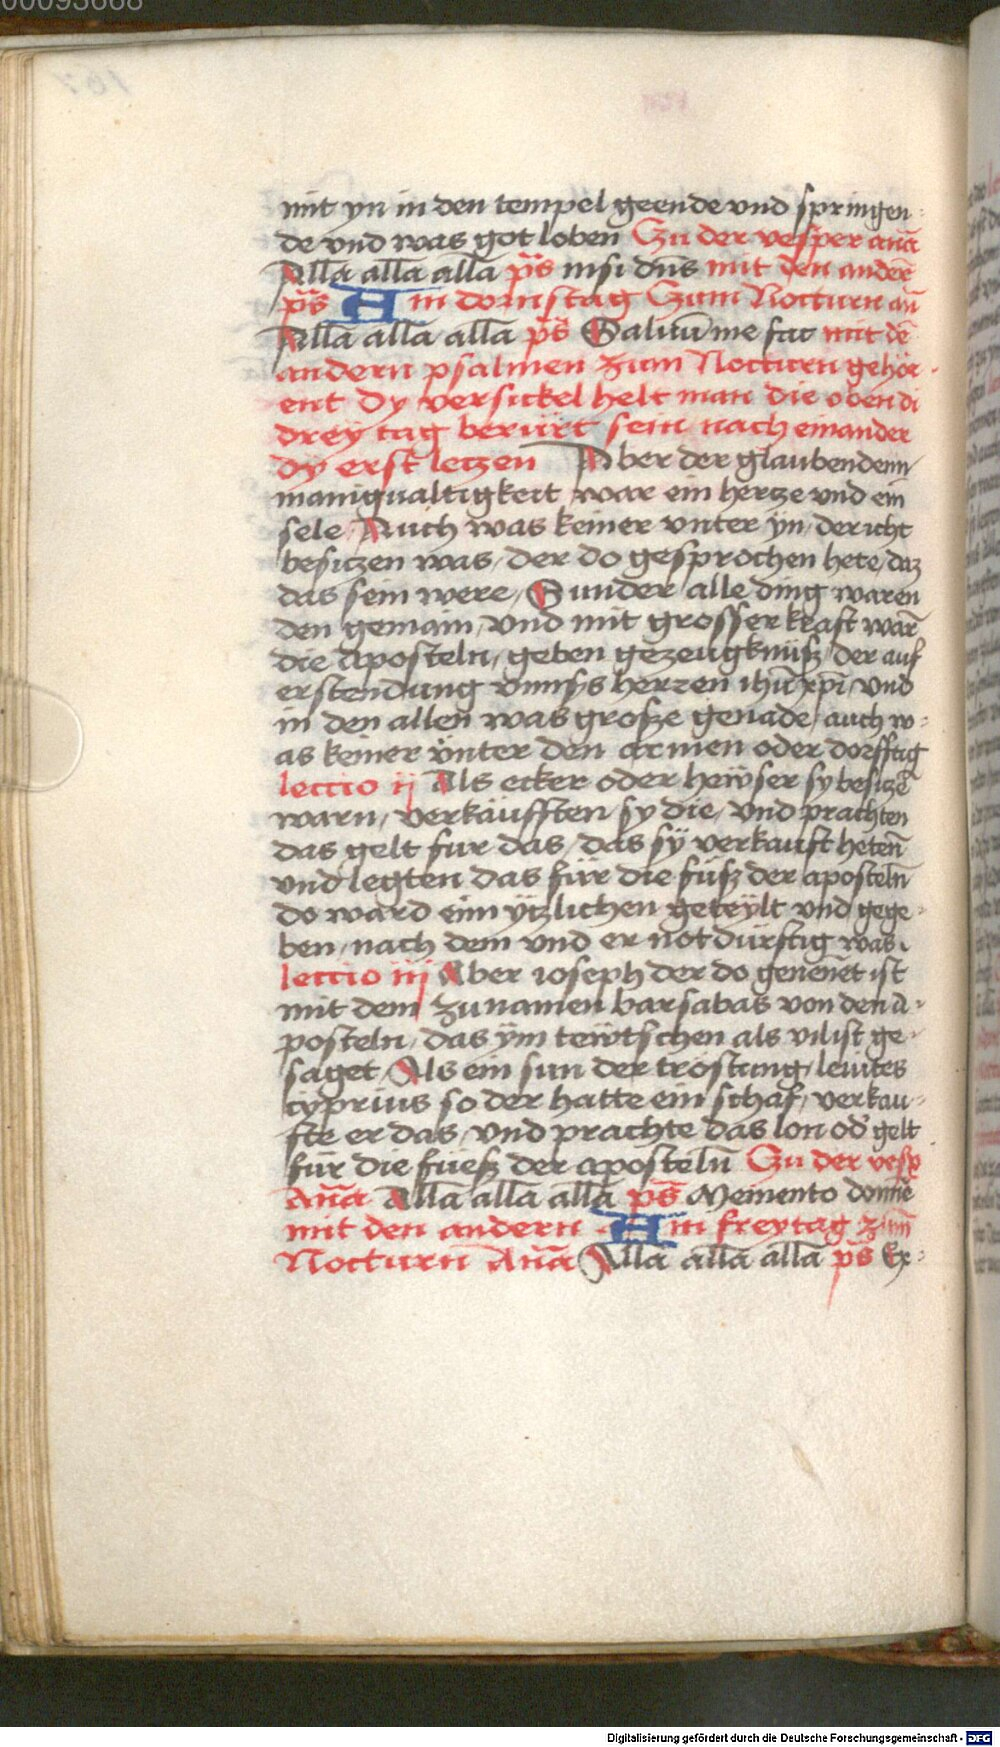 00093668
mit yn in den tempel geende vnd springen
de vnd was got loben Zu der vesper anā
Allā allā allā ps̄ nisi dn̄s mit den anderē
ps̄ Am dornstag Zum Nocturn an̄
Allā allā allā ps̄ Saluū me fac mit dē
andern psalmen zum Nocturn gehör
ent Dy versickel helt man die oben di
drey tag berürt sein nach einander
dy erst letzen Aber der glaubendenn
manigualtigkeit war ein hertze vnd ein
sele / Auch was keiner vnter yn / der icht
besitzen was / der do gesprochen hete / daz
das sein were / Sunder alle ding waren
den gemain / vnd mit grosser kraft warē
die aposteln / geben gezeugknüsz / der auf
erstendung vnnsʒs herren ihū xp̄i / vnd
in den allen was grosze genade / auch w
as keiner vnter den armen oder dorfftig
lectio ij Als ecker oder heÿser sy besitzē
warn / verkäufften sy die / vnd prachten
das gelt fur das / das sÿ verkauft hetenn̄
vnd legten das für die füsz der aposteln̄
do ward eim ÿtzlichen geteÿlt vnd gege
ben / nach dem vnd er notdürftig was.
lectio iij Aber ioseph der do genen̄et ist
mit dem zunamen barsabas von den a
posteln / das ÿm tewtschen als vil ist ge
saget / Als ein sun der trostung / leuites
cyprius so der hatte ein schaf / verkau
fte er das / vnd prachte das lon od̕ gelt
für die füesz der aposteln̄ Zu der vesp̄
An̄a Allā allā allā ps̄ Memento domīe
mit den andern Am freytag zum
Nocturn̄ An̄a Allā allā allā ps̄ Ex
Digitalisierung gefördert durch die Deutsche Forschungsgemeinschaft - DFG